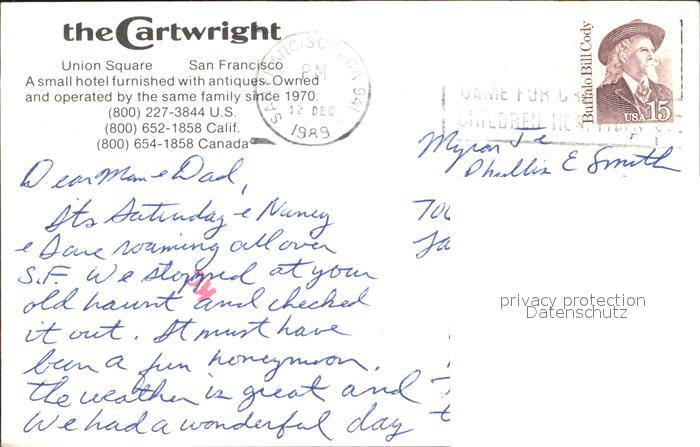 the Cartwright
Union Square San Francisco
A small hotel furnished with antiques. Owned
and operated by the same family since 1970.
(800) 227-3844 U.S.
(800) 652-1858 Calif.
(800) 654-1858 Canada
SAN FRANCISCO, CA 941
PM
12 DEC
1989
GAME FOR
CHILDREN HOSPITALS
Buffalo Bill Cody
USA 15
Dear Mom & Dad,
Its Saturday & Nancy
& Dave roaming all over
S.F. We stopped at your
old haunt and checked
it out. It must have
been a fun honeymoon.
The weather is great and
We had a wonderful day
Myron
Phyllis E Smith
700
privacy protection
Datenschutz